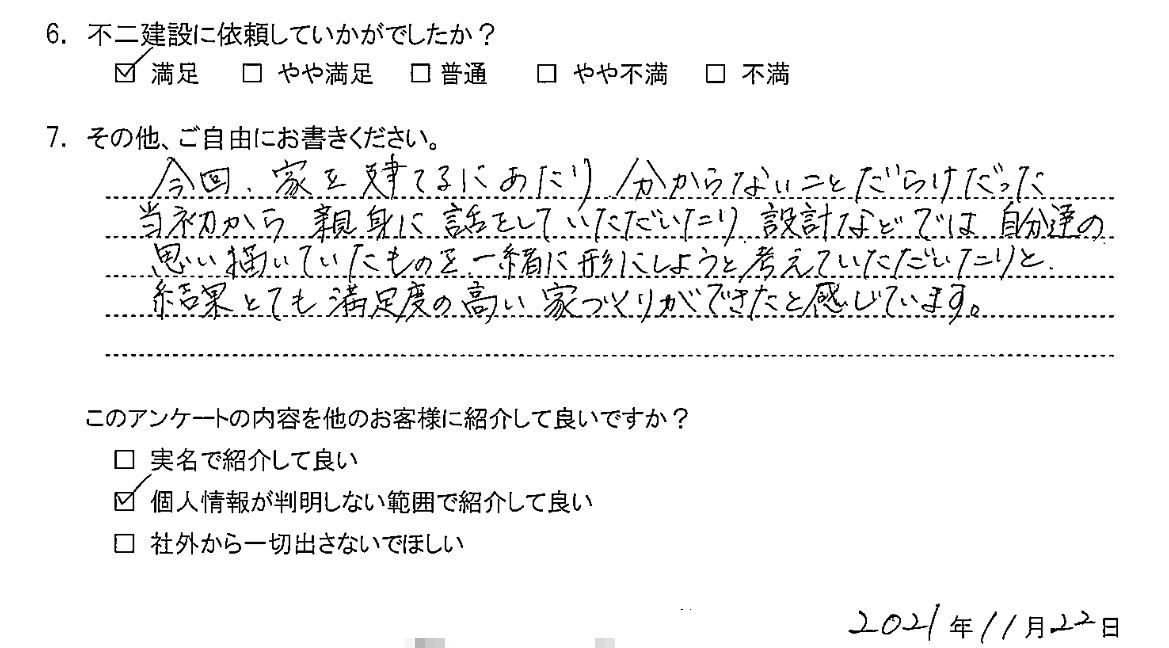 6. 不二建設に依頼していかがでしたか？
☑ 満足 □ やや満足 □ 普通 □ やや不満 □ 不満
7. その他、ご自由にお書きください。
今回、家を建てるにあたり分からないことだらけだった
当初から親身に話をしていただいたり設計などでは自分達の
思い描いていたものを一緒に形にしようと考えていただいたりと、
結果とても満足度の高い家づくりができたと感じています。
このアンケートの内容を他のお客様に紹介して良いですか？
□ 実名で紹介して良い
☑ 個人情報が判明しない範囲で紹介して良い
□ 社外から一切出さないでほしい
2021年11月22日